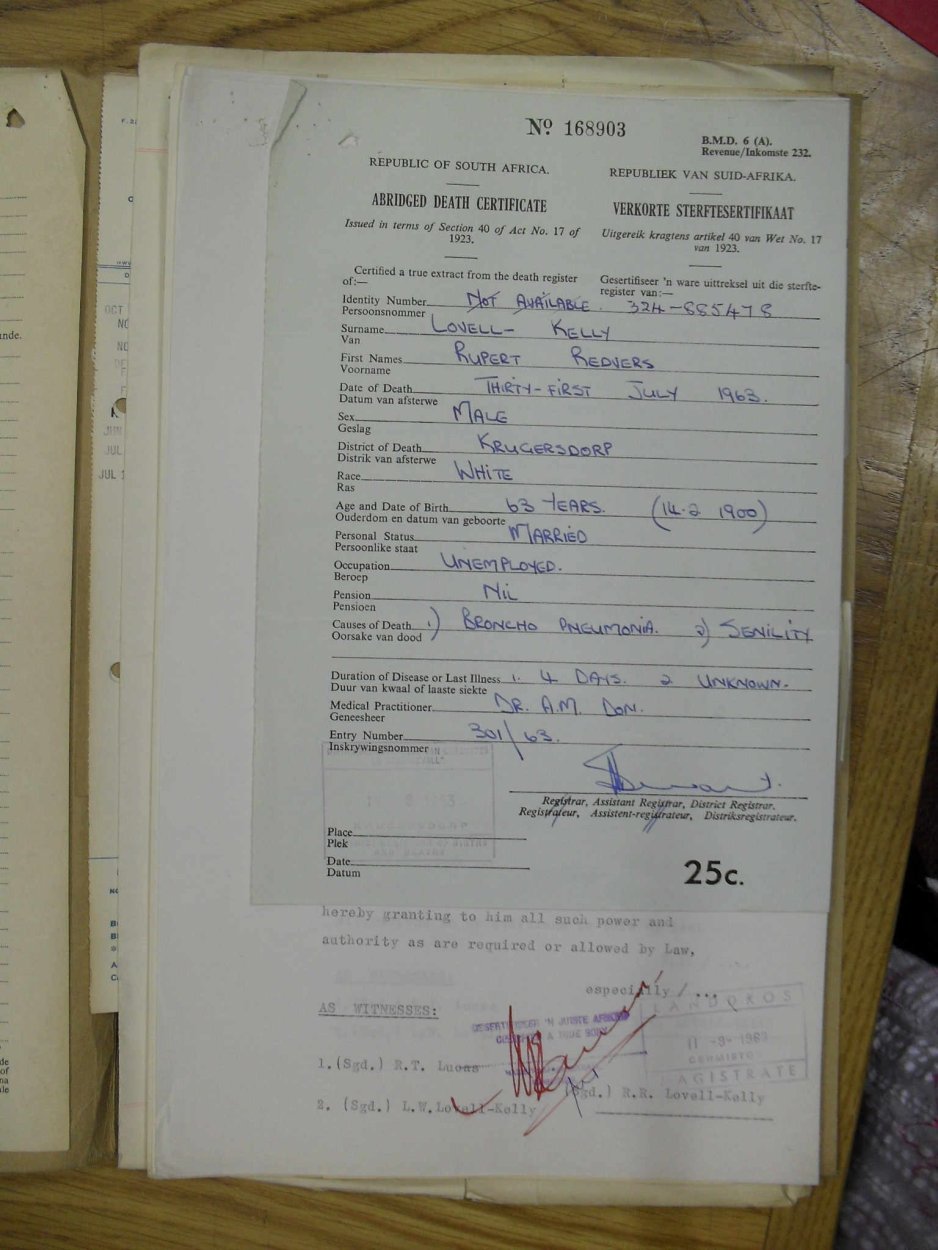 Nº 168903
B.M.D. 6 (A).
Revenue/Inkomste 232.
REPUBLIC OF SOUTH AFRICA.
REPUBLIEK VAN SUID-AFRIKA.
ABRIDGED DEATH CERTIFICATE
VERKORTE STERFTESERTIFIKAAT
Issued in terms of Section 40 of Act No. 17 of
1923.
Uitgereik kragtens artikel 40 van Wet No. 17
van 1923.
Certified a true extract from the death register
of:—
Gesertifiseer 'n ware uittreksel uit die sterfte-
register van:—
Identity Number NOT AVAILABLE. 324-885478
Persoonsnommer
Surname LOVELL- KELLY
Van
First Names RUPERT REDVERS
Voorname
Date of Death THIRTY-FIRST JULY 1963.
Datum van afsterwe
Sex MALE
Geslag
District of Death KRUGERSDORP
Distrik van afsterwe
Race WHITE
Ras
Age and Date of Birth 63 YEARS. (14-2 1900)
Ouderdom en datum van geboorte
Personal Status MARRIED
Persoonlike staat
Occupation UNEMPLOYED.
Beroep
Pension NIL
Pensioen
Causes of Death 1) BRONCHO PNEUMONIA. 2) SENILITY
Oorsake van dood
Duration of Disease or Last Illness 1. 4 DAYS. 2 UNKNOWN.
Duur van kwaal of laaste siekte
Medical Practitioner DR. A.M. DON.
Geneesheer
Entry Number 301/63.
Inskrywingsnommer
Registrar, Assistant Registrar, District Registrar.
Registrateur, Assistent-registrateur, Distriksregistrateur.
Place
Plek
Date
Datum
25c.
hereby granting to him all such power and
authority as are required or allowed by Law,
especially/...
AS WITNESSES:
LANDDROS
GERMISTON
MAGISTRATE
1.(Sgd.) R.T. Lucas
(Sgd.) R.R. Lovell-Kelly
2. (Sgd.) L.W.Lovell-Kelly